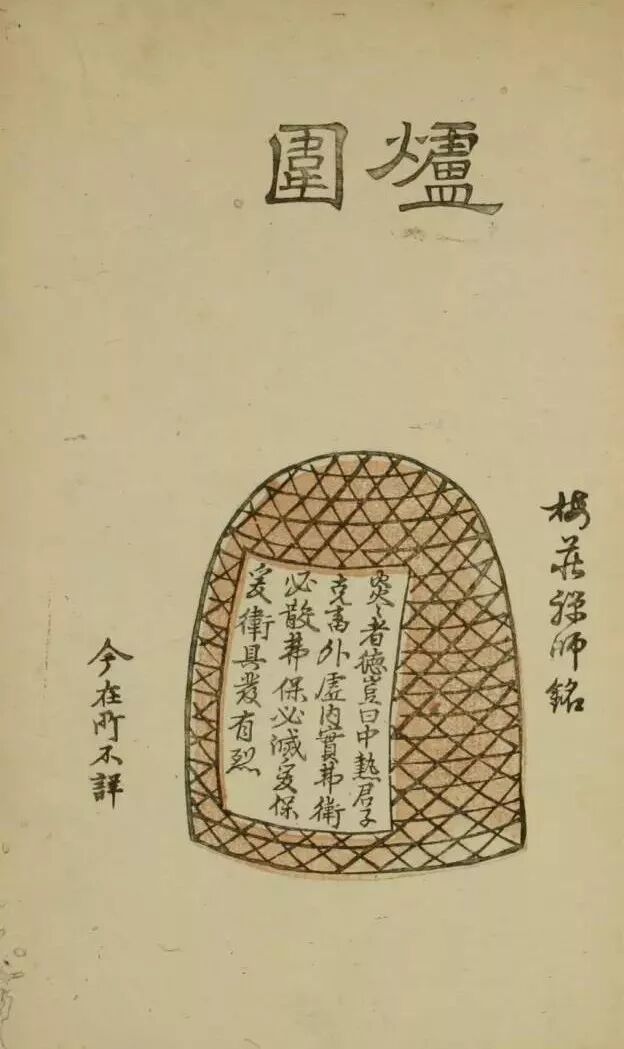 爐圍
梅莊禅師銘
炎々者徳豈曰中熱君子
克外虚内實弗衛
必散弗保必滅爰保
爰衛具發有烈
今在所不詳